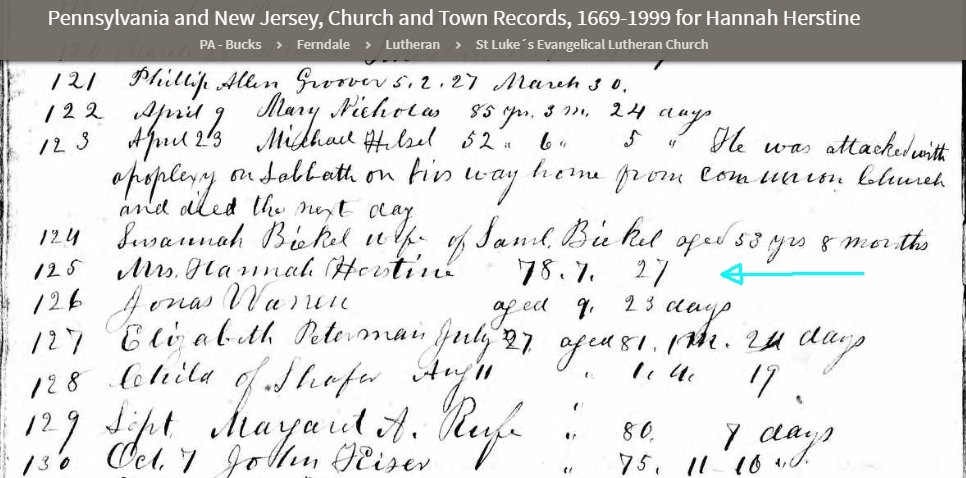 Pennsylvania and New Jersey, Church and Town Records, 1669-1999 for Hannah Herstine
PA - Bucks > Ferndale > Lutheran > St Luke´s Evangelical Lutheran Church
121 Phillip Allen Groover 5. 2. 27 March 30.
122 April 9 Mary Nicholas 85 yrs. 3 m. 24 days
123 April 23 Michael Hilsel 52 " 6 " 5 " He was attacked with
apoplexy on Sabbath on his way home from communion Church
and died the next day
124 Susannah Bickel wife of Saml. Bickel aged 53 yrs 8 months
125 Mrs. Hannah Herstine 78. 7. 27
126 Jonas Warren aged 9. 23 days
127 Elizabeth Peterman July 27, aged 81. 1 m. 24 days
128 Child of Shafer Aug 11 " 1. 4. 19
129 Sept. Margaret A. Rufe " 80. 7 days
130 Oct. 7 John Heiser " 75. 11 - 10 "